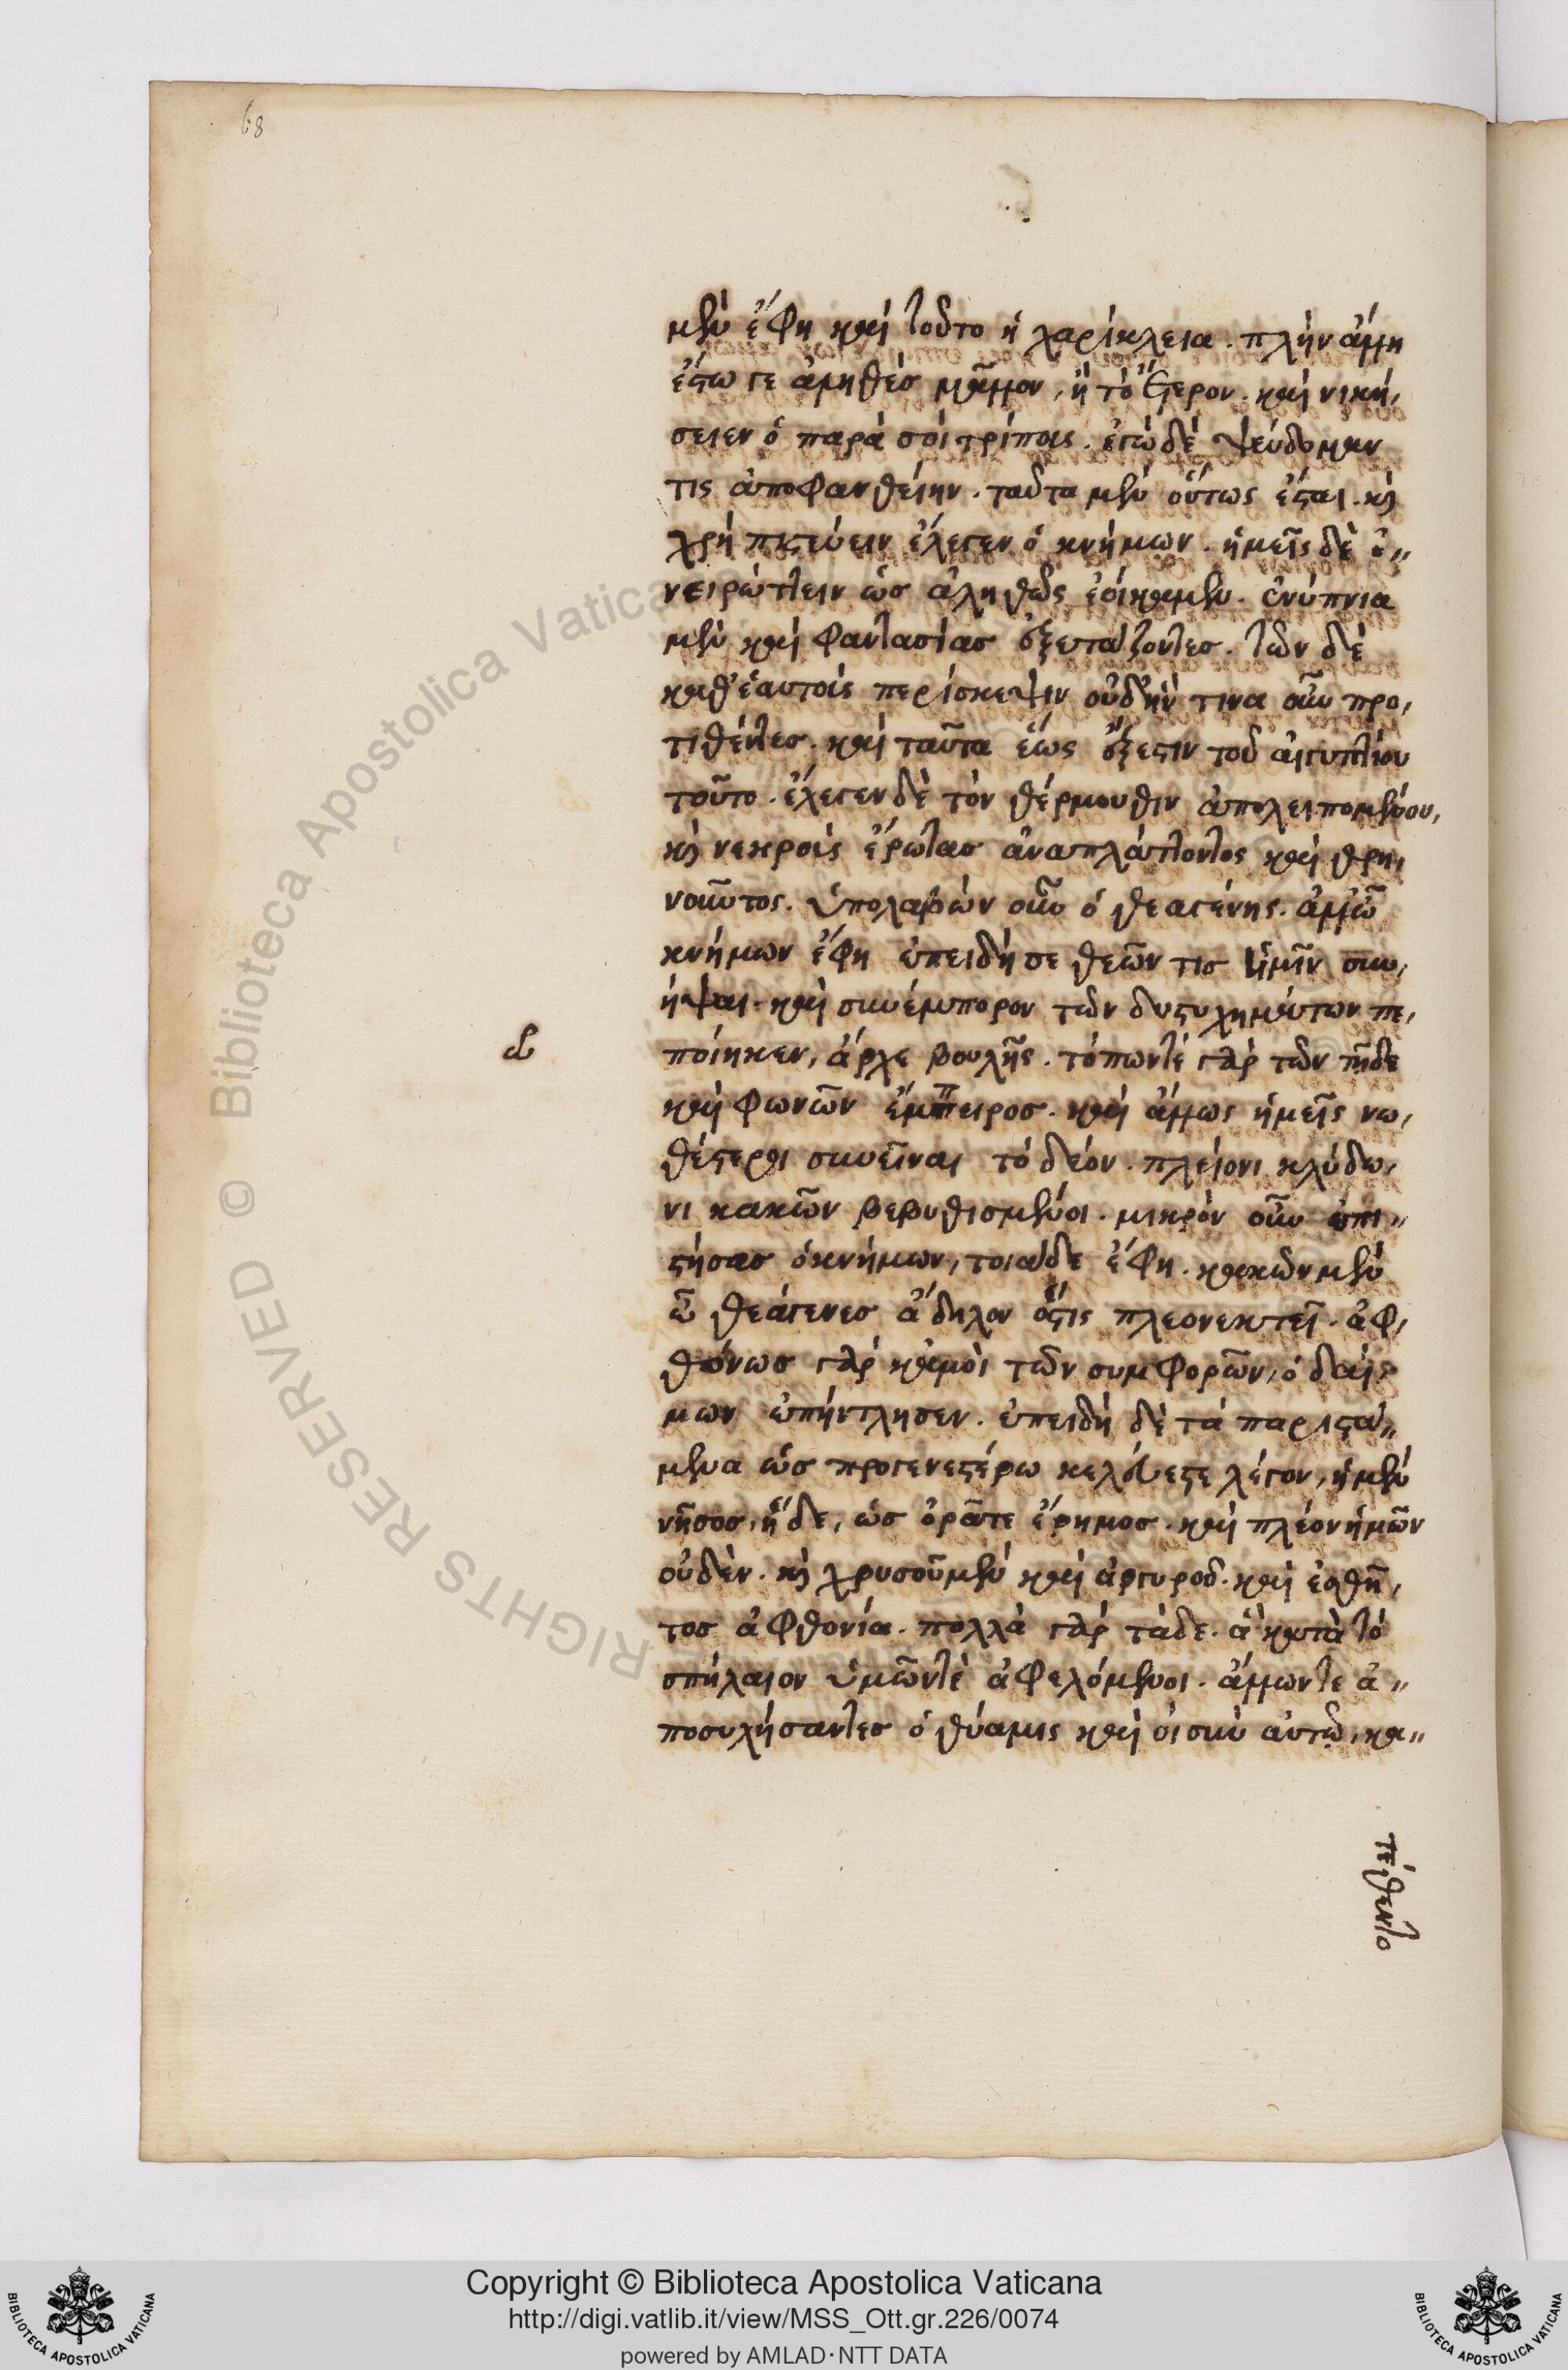 68
μὲν ἔφη καὶ τοῦτο ἡ χαρίκλεια. πλὴν ἀλλ'
ἔστω γε ἀληθὲς μᾶλλον, ἢ τὸ ἕτερον. καὶ νική,
σειεν ὁ παρὰ σοὶ τρίπους. ἐγὼ δὲ ψεύδομαν
τις ἀποφανθείην. ταῦτα μὲν οὕτως ἔσται. καὶ
χρὴ πιστεύειν ἔλεγεν ὁ κνήμων. ἡμεῖς δὲ ὀ,,
νειρώττειν ὡς ἀληθῶς ἐοίκαμεν. ἐνύπνια
μὲν καὶ φαντασίας ἐξετάζοντες. τῶν δὲ
καθ' ἑαυτοὺς περίσκεψιν οὐδ' ἥν τινα οὖν προ,
τιθέντες. καὶ ταῦτα ἕως ἔξεστιν τοῦ αἰγυπτίου
τοῦτο. ἔλεγεν δὲ τὸν θέρμουθιν ἀπολειπομένου,
καὶ νεκροὺς ἔρωτας ἀναπλάττοντος καὶ θρη,
νοῦντος. ὑπολαβὼν οὖν ὁ θεαγένης. ἀλλ' ὦ
κνήμων ἔφη ἐπειδή σε θεῶν τις ἡμῖν συν,
ῆψαι. καὶ συνέμπορον τῶν δυστυχημάτων πε,
ποίηκεν, ἄρχε βουλῆς. τόπων τὲ γὰρ τῶν τῇδε
καὶ φωνῶν ἔμπειρος. καὶ ἄλλως ἡμεῖς νω,
θέστεροι συνεῖναι τὸ δέον. πλείονι κλύδω,
νι κακῶν βεβυθισμένοι. μικρὸν οὖν ἐπι,,
στήσας ὁ κνήμων, τοιάδε ἔφη. κακῶν μὲν
ὦ θεάγενες ἄδηλον ὅστις πλεονεκτεῖ. ἀφ,
θόνως γὰρ κἀμοὶ τῶν συμφορῶν, ὁ δαί,
μων ἐπήντλησεν. ἐπειδὴ δὲ τὰ παριστά,,
μενα ὡς προγενεστέρω κελεύετε λέγον, ἡ μὲν
νῆσος, ἥδε, ὡς ὁρᾶτε ἔρημος. καὶ πλέον ἡμῶν
οὐδὲν. καὶ χρυσοῦ μὲν καὶ ἀργυροῦ. καὶ ἐσθῆ,
τος ἀφθονία. πολλὰ γὰρ τάδε. ἃ κατὰ τὸ
σπήλαιον ὑμῶν τὲ ἀφελόμενοι. ἄλλων τε ἀ,,
ποσυλήσαντες ὁ θύαμις καὶ οἱ σὺν αὐτῷ, κα,,
τέθεντο
Copyright © Biblioteca Apostolica Vaticana
http://digi.vatlib.it/view/MSS_Ott.gr.226/0074
powered by AMLAD·NTT DATA